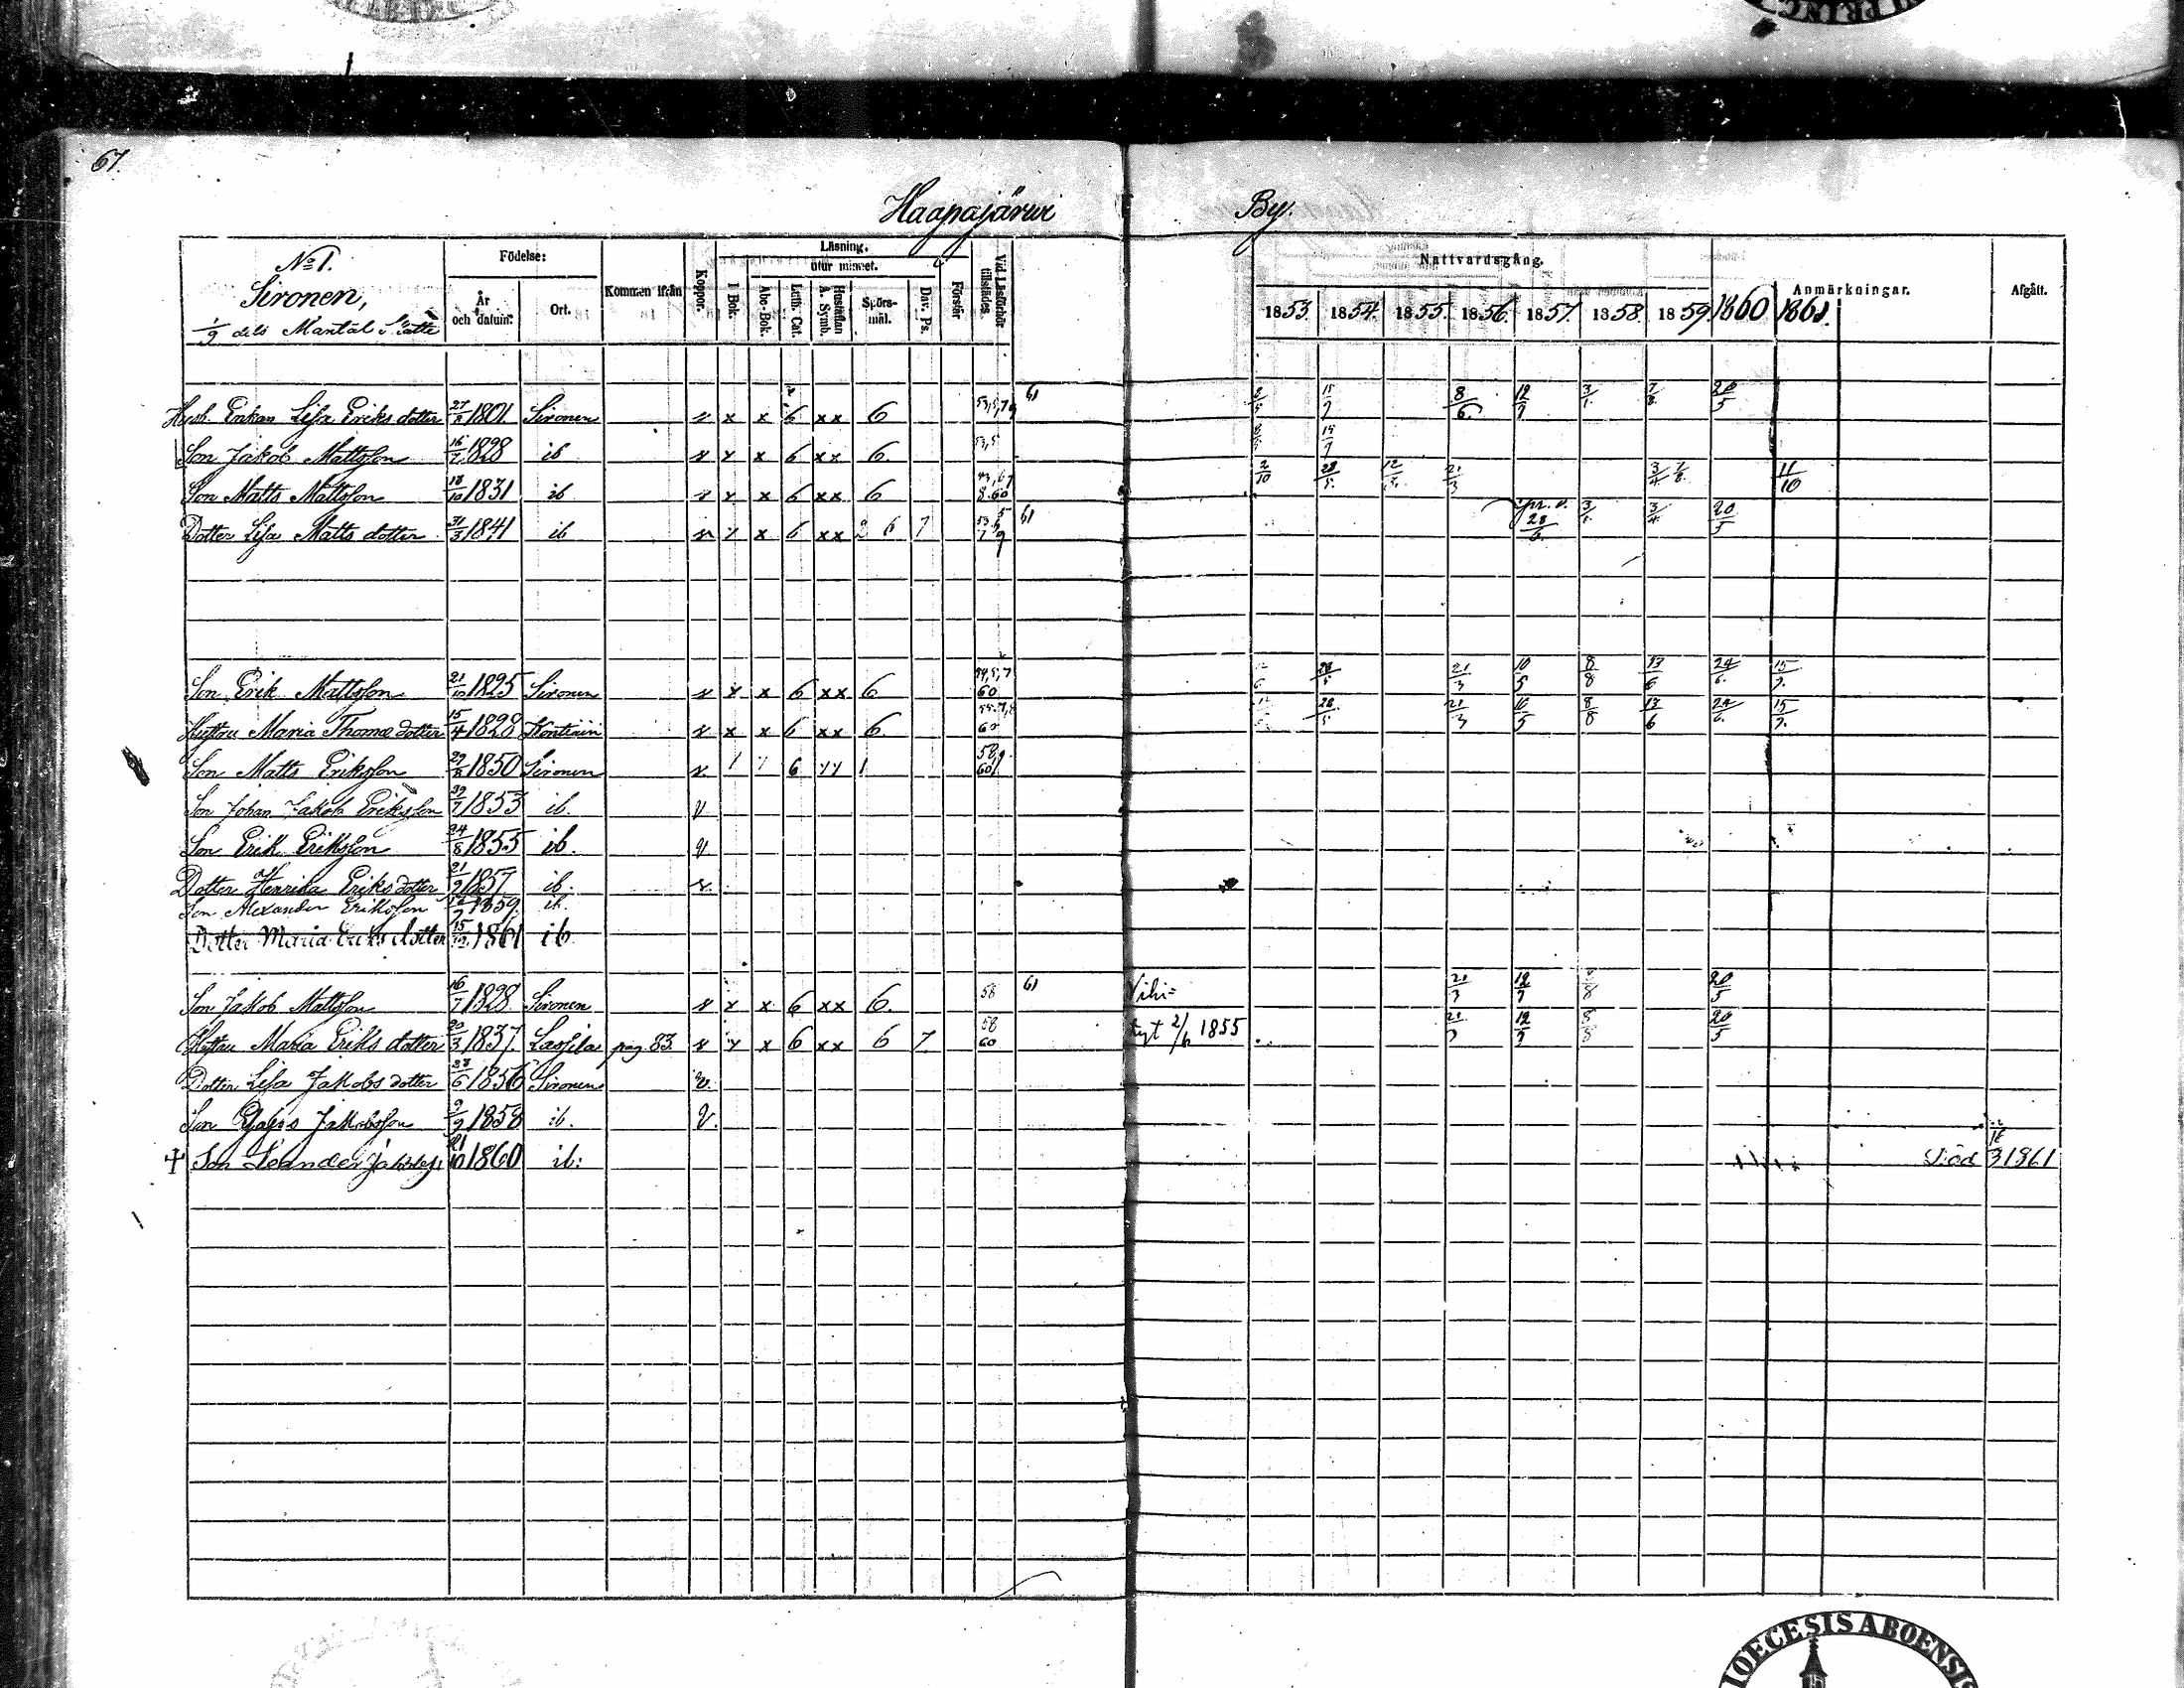 67.
Haapajärvi By.
№ 1.
Sironen,
1/9 dels Mantal Skatte
Födelse:
År och datum.
Ort.
Kommen ifrån
Koppor.
Läsning.
I Bok.
utur minnet.
Abc-Bok.
Luth. Cat.
Hustaflan A. Symb.
Spörsmål.
Dav. Ps.
Förstår
Vid Läsförhör tillstädes.
Nattvardsgång.
1853. 1854. 1855. 1856. 1857. 1858. 1859. 1860 1861.
Anmärkningar.
Afgått.
Husb. Enkan Lisa Eriks dotter 27/8 1801. Sironen x x x 6 xx 6 61 15/7 8/6 12/7 3/1 7/8 20/5
Son Jakob Mattsson 16/7 1828 ib x x x 6 xx 6. 53,5 15/7
Son Matts Mattsson 18/10 1831 ib x x x 6 xx 6 8.60 2/10 28/5 12/5 21/3 3/4 7/8 11/10
Dotter Lisa Matts dotter 31/3 1841 ib x x x 6 xx 2 6 7 61 28/6 3/1 3/4 20/5
Son Erik Mattsson 21/10 1825 Sironen x x x 6 xx 6 60 28/5 21/3 10/5 8/8 13/6 24/6 15/7
Hustru Maria Thomæ dotter 15/4 1828 Kontiain x x x 6 xx 6. 60 28/5 21/3 10/5 8/8 13/6 24/6 15/7
Son Matts Eriksson 29/8 1850 Sironen 6 1 58,9. 60
Son Johan Jakob Eriksson 29/7 1853 ib. v
Son Erik Eriksson 24/8 1855 ib. v
Dotter Henrika Eriks dotter 21/9 1857. ib.
Son Alexander Eriksson 1859. ib.
Dotter Maria Eriks dotter 15/12 1861 ib
Son Jakob Mattsson 16/7 1828. Sironen x x x 6 xx 6. 58 61 Vihi= 21/3 12/7 8/8 20/5
Hustru Maria Eriks dotter 20/3 1837. Lassila pag. 83. x x x 6 xx 6 7. 58 60 2/6 1855 21/3 12/7 8/8 20/5
Dotter Lisa Jakobs dotter 1856 Sironen v.
Son Jakobsson 9/9 1858 ib. v.
† Son Leander Jakobss. 21/10 1860 ib: Död 16/3 1861
DIOECESIS ABOENSIS